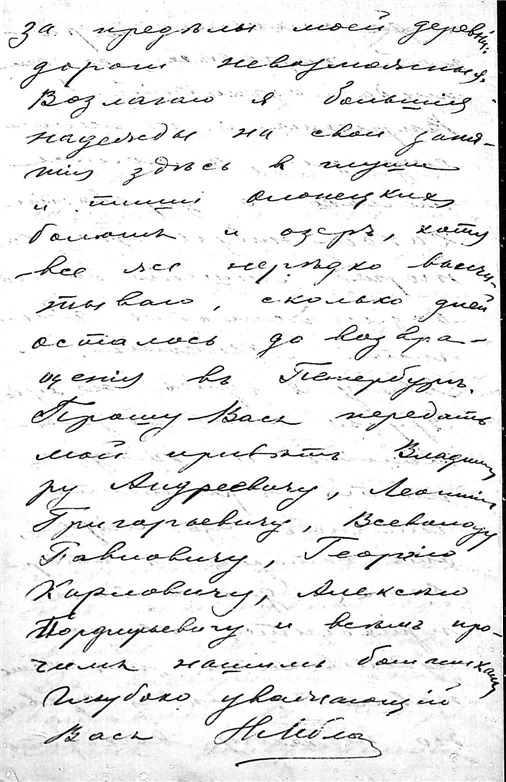 за предѣлы моей деревни:
дороги невозможныя.
Возлагаю я большія
надежды на свои заня-
тія здѣсь въ глуши
и тиши олонецкихъ
болотъ и озеръ, хотя
все же нерѣдко высчи-
тываю, сколько дней
осталось до возвра-
щенія въ Петербургъ.
Прошу Васъ передать
мой привѣтъ Владими-
ру Андреевичу, Леониду
Григорьевичу, Всеволоду
Павловичу, Георгію
Карловичу, Алексѣю
Порфирьевичу и всѣмъ про-
чимъ нашимъ ботаникамъ
Глубоко уважающій
Васъ